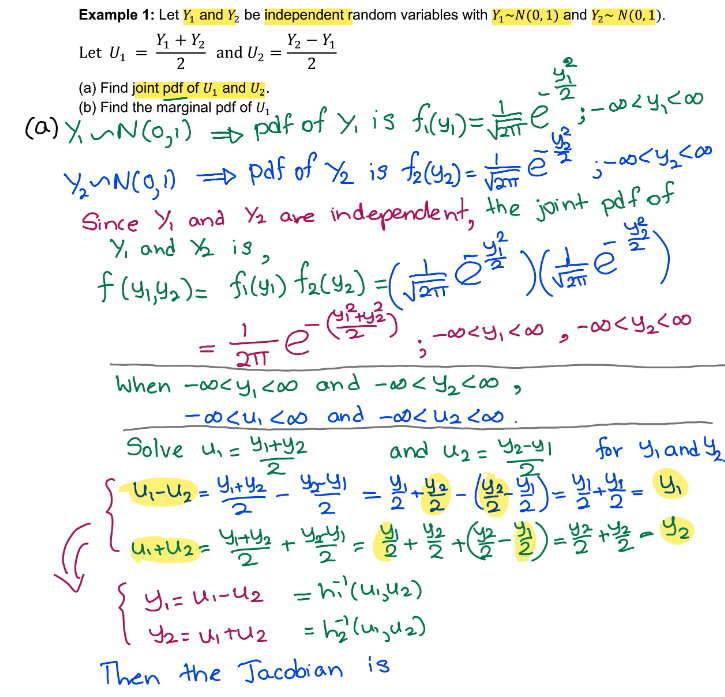 Example 1: Let Y₁ and Y₂ be independent random variables with Y₁~N(0, 1) and Y₂~ N(0, 1).
Let U₁ = (Y₁ + Y₂)/2 and U₂ = (Y₂ − Y₁)/2
(a) Find joint pdf of U₁ and U₂.
(b) Find the marginal pdf of U₁
(a) Y₁ ~ N(0,1) ⇒ pdf of Y₁ is f₁(y₁) = 1/√2π e^(−y₁²/2) ; −∞<y₁<∞
Y₂ ~ N(0,1) ⇒ pdf of Y₂ is f₂(y₂) = 1/√2π e^(−y₂²/2) ; −∞<y₂<∞
Since Y₁ and Y₂ are independent, the joint pdf of
Y₁ and Y₂ is,
f(y₁,y₂) = f₁(y₁) f₂(y₂) = (1/√2π e^(−y₁²/2)) (1/√2π e^(−y₂²/2))
= 1/2π e^(−(y₁²+y₂²)/2) ; −∞<y₁<∞ , −∞<y₂<∞
When −∞<y₁<∞ and −∞<y₂<∞ ,
−∞<u₁<∞ and −∞<u₂<∞ .
Solve u₁ = (y₁+y₂)/2 and u₂ = (y₂−y₁)/2 for y₁ and y₂
u₁−u₂ = (y₁+y₂)/2 − (y₂−y₁)/2 = y₁/2 + y₂/2 − (y₂/2 − y₁/2) = y₁/2 + y₁/2 = y₁
u₁+u₂ = (y₁+y₂)/2 + (y₂−y₁)/2 = y₁/2 + y₂/2 + (y₂/2 − y₁/2) = y₂/2 + y₂/2 = y₂
y₁ = u₁−u₂ = h₁⁻¹(u₁,u₂)
y₂ = u₁+u₂ = h₂⁻¹(u₁,u₂)
Then the Jacobian is